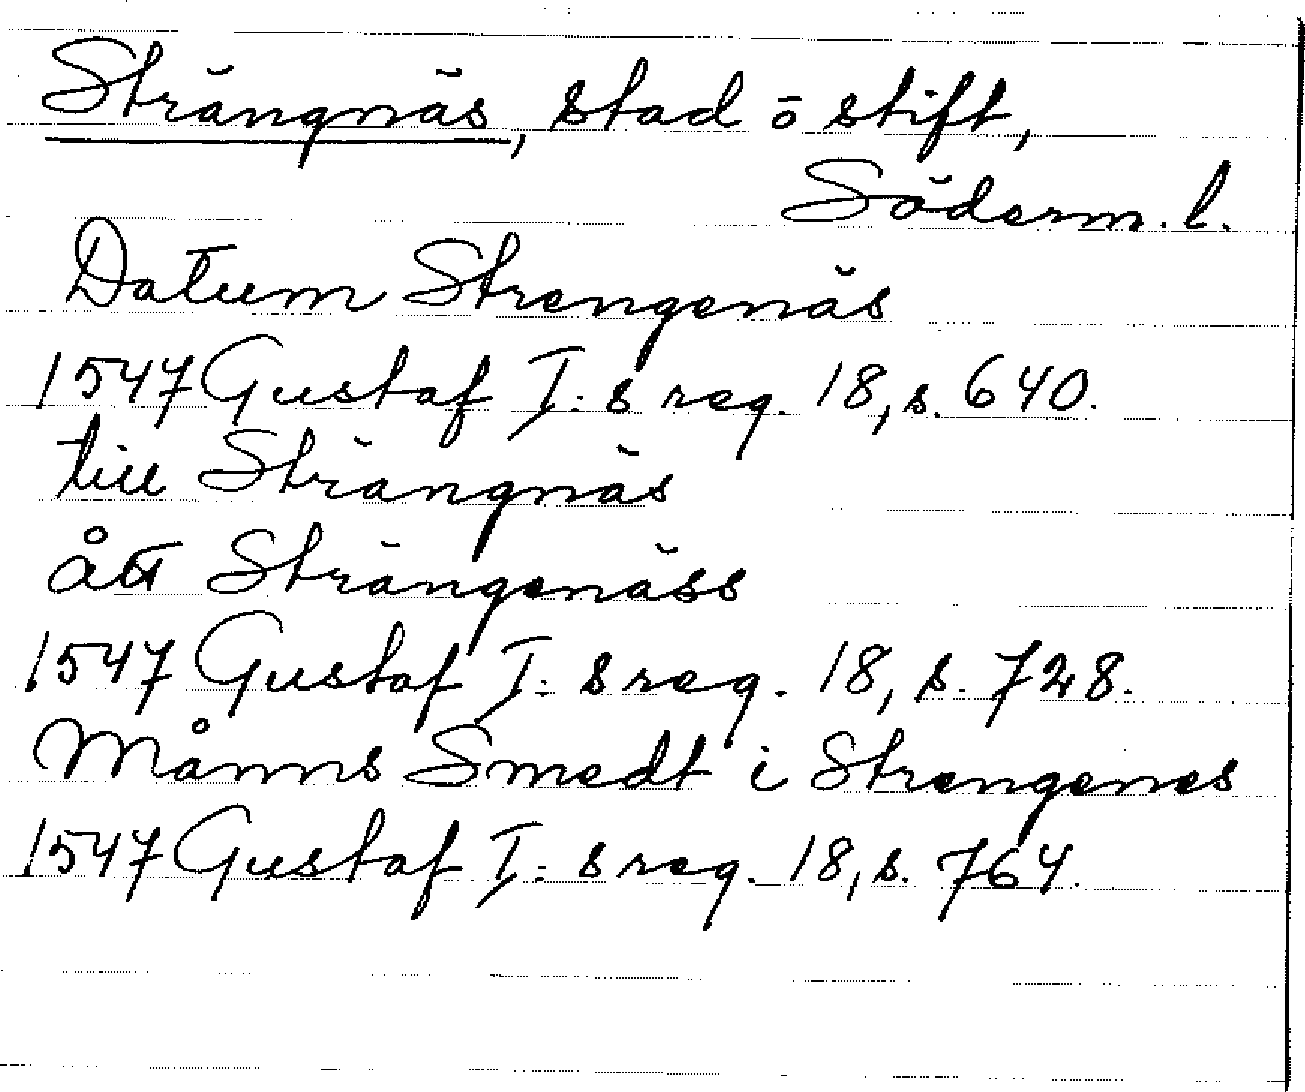 Strängnäs, stad o stift,
Söderm. l.
Datum Strengenäs
1547 Gustaf I:s reg. 18, s. 640.
till Strängnäs
ått Strängenäss
1547 Gustaf I:s reg. 18, s. 728.
Månns Smedt i Strengenes
1547 Gustaf I:s reg. 18, s. 764.